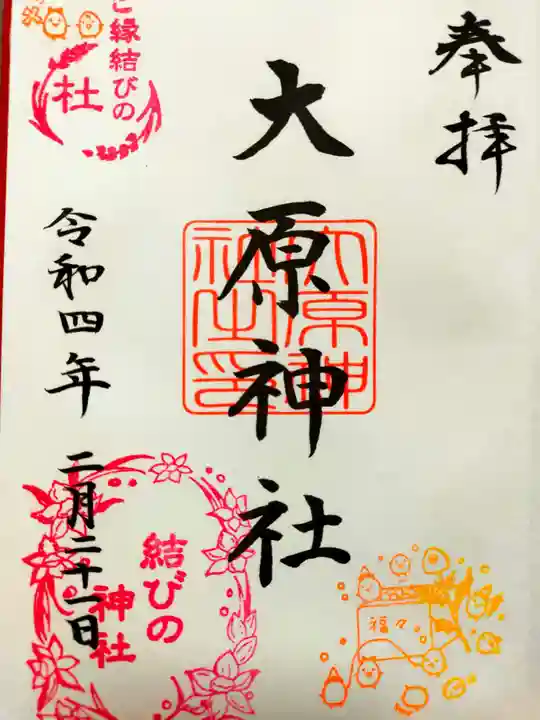 奉拝
大原神社
大原神社之印
ご縁結びの
杜
令和四年 二月二十一日
結びの
神社
福々